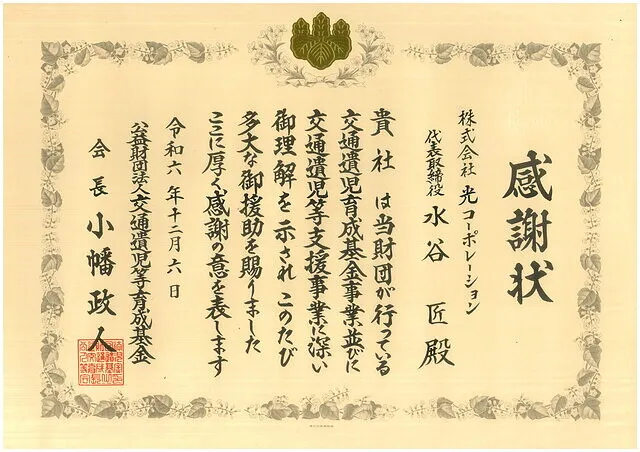 感謝状
株式会社 光コーポレーション
代表取締役 水谷 匠 殿
貴社は当財団が行っている
交通遺児育成基金事業並びに
交通遺児等支援事業に深い
御理解を示されこのたび
多大な御援助を賜りました
ここに厚く感謝の意を表します
令和六年十二月六日
公益財団法人交通遺児等育成基金
会長 小幡政人